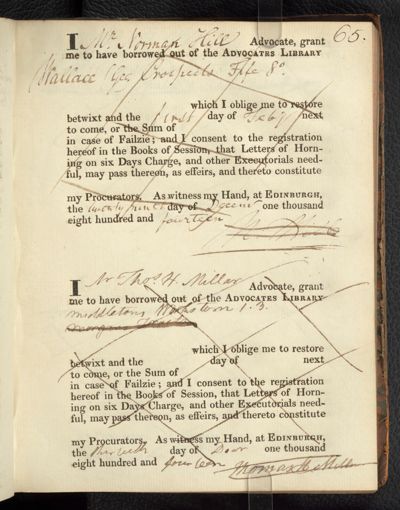 65.
I Mr. Norman Hill Advocate, grant
me to have borrowed out of the ADVOCATES LIBRARY
Wallace Geo. Prospects Fife 8o.
which I oblige me to restore
betwixt and the first day of Feby next
to come, or the Sum of
in case of Failzie; and I consent to the registration
hereof in the Books of Session, that Letters of Horn-
ing on six Days Charge, and other Executorials need-
ful, may pass thereon, as effeirs, and thereto constitute
my Procurators. As witness my Hand, at EDINBURGH,
the twenty day of Decemr one thousand
eight hundred and fourteen
I Mr Thos. H. Millar Advocate, grant
me to have borrowed out of the ADVOCATES LIBRARY
middletons 1. 3.
which I oblige me to restore
betwixt and the day of next
to come, or the Sum of
in case of Failzie; and I consent to the registration
hereof in the Books of Session, that Letters of Horn-
ing on six Days Charge, and other Executorials need-
ful, may pass thereon, as effeirs, and thereto constitute
my Procurators. As witness my Hand, at EDINBURGH,
the thirtieth day of Decr one thousand
eight hundred and fourteen Thomas H Millar